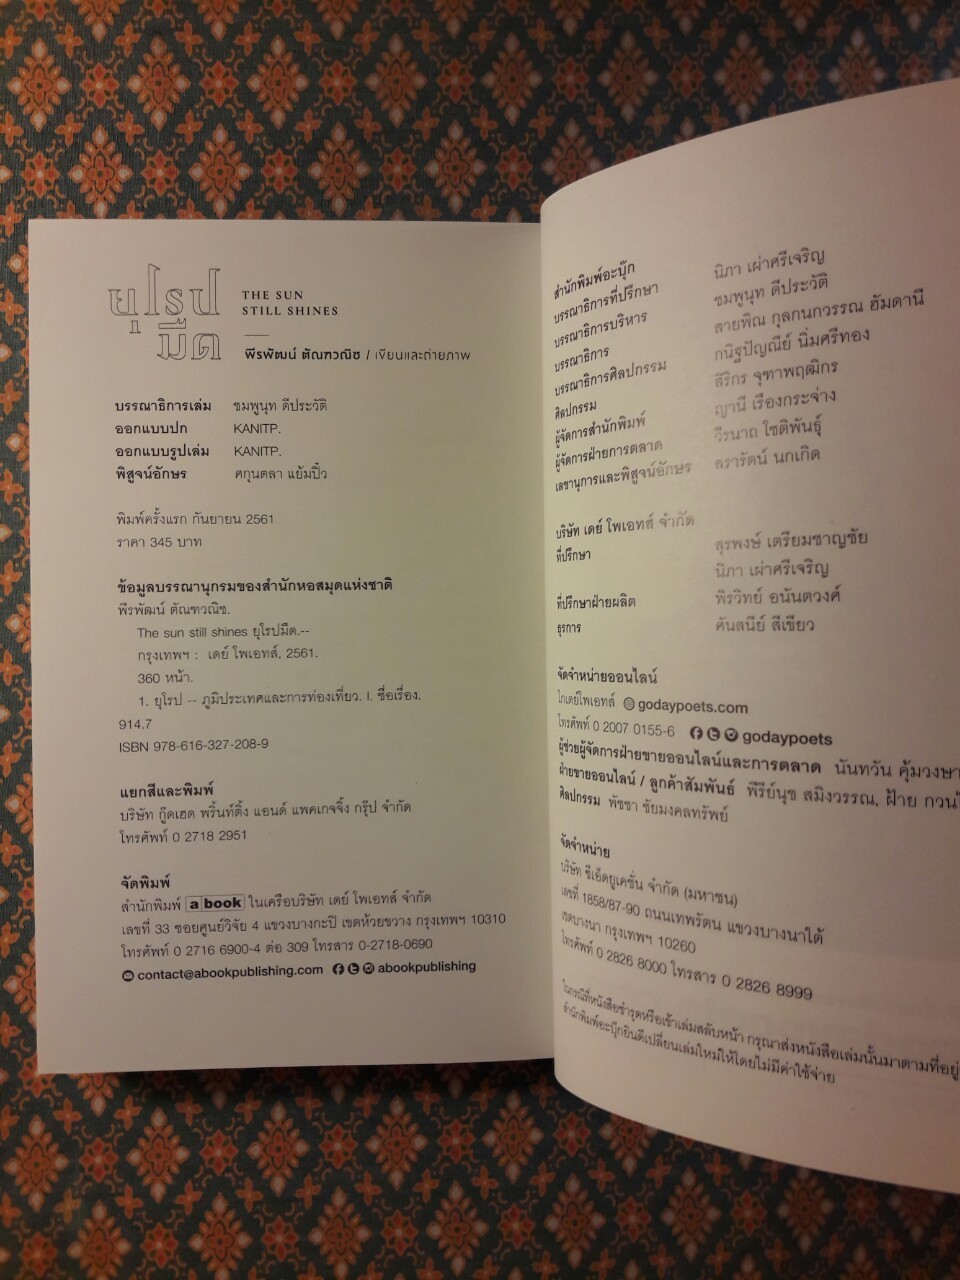 ยุโรปมืด
THE SUN
STILL SHINES
พีรพัฒน์ ตัณฑวณิช / เขียนและถ่ายภาพ
บรรณาธิการเล่ม ชมพูนุท ดีประวัติ
ออกแบบปก KANITP.
ออกแบบรูปเล่ม KANITP.
พิสูจน์อักษร ศกุนตลา แย้มปิ๋ว
พิมพ์ครั้งแรก กันยายน 2561
ราคา 345 บาท
ข้อมูลบรรณานุกรมของสำนักหอสมุดแห่งชาติ
พีรพัฒน์ ตัณฑวณิช.
The sun still shines ยุโรปมืด.--
กรุงเทพฯ : เดย์ โพเอทส์, 2561.
360 หน้า.
1. ยุโรป -- ภูมิประเทศและการท่องเที่ยว. I. ชื่อเรื่อง.
914.7
ISBN 978-616-327-208-9
แยกสีและพิมพ์
บริษัท กู๊ดเฮด พริ้นท์ติ้ง แอนด์ แพคเกจจิ้ง กรุ๊ป จำกัด
โทรศัพท์ 0 2718 2951
จัดพิมพ์
สำนักพิมพ์ a book ในเครือบริษัท เดย์ โพเอทส์ จำกัด
เลขที่ 33 ซอยศูนย์วิจัย 4 แขวงบางกะปิ เขตห้วยขวาง กรุงเทพฯ 10310
โทรศัพท์ 0 2716 6900-4 ต่อ 309 โทรสาร 0-2718-0690
contact@abookpublishing.com abookpublishing
สำนักพิมพ์อะบุ๊ก
บรรณาธิการที่ปรึกษา นิภา เผ่าศรีเจริญ
บรรณาธิการบริหาร ชมพูนุท ดีประวัติ
บรรณาธิการ สายพิณ กุลกนกวรรณ ฮัมดานี
บรรณาธิการศิลปกรรม กนิฐปัญณีย์ นิ่มศรีทอง
ศิลปกรรม สิริกร จุฑาพฤฒิกร
ผู้จัดการสำนักพิมพ์ ญานี เรืองกระจ่าง
ผู้จัดการฝ่ายการตลาด วีรนาถ โชติพันธุ์
เลขานุการและพิสูจน์อักษร ลรารัตน์ นกเกิด
บริษัท เดย์ โพเอทส์ จำกัด
ที่ปรึกษา สุรพงษ์ เตรียมชาญชัย
นิภา เผ่าศรีเจริญ
ที่ปรึกษาฝ่ายผลิต พิรวิทย์ อนันตวงศ์
ธุรการ คันสนีย์ สีเขียว
จัดจำหน่ายออนไลน์
โกเดย์โพเอทส์ godaypoets.com
โทรศัพท์ 0 2007 0155-6 godaypoets
ผู้ช่วยผู้จัดการฝ่ายขายออนไลน์และการตลาด นันทวัน คุ้มวงษา
ฝ่ายขายออนไลน์ / ลูกค้าสัมพันธ์ พีรีย์นุช สมิงวรรณ, ฝ้าย
ศิลปกรรม พัชชา ชัยมงคลทรัพย์
จัดจำหน่าย
บริษัท ซีเอ็ดยูเคชั่น จำกัด (มหาชน)
เลขที่ 1858/87-90 ถนนเทพรัตน แขวงบางนาใต้
เขตบางนา กรุงเทพฯ 10260
โทรศัพท์ 0 2826 8000 โทรสาร 0 2826 8999
ในกรณีที่หนังสือชำรุดหรือเข้าเล่มสลับหน้า กรุณาส่งหนังสือเล่มนั้นมาตามที่อยู่
สำนักพิมพ์อะบุ๊กยินดีเปลี่ยนเล่มใหม่ให้โดยไม่มีค่าใช้จ่าย